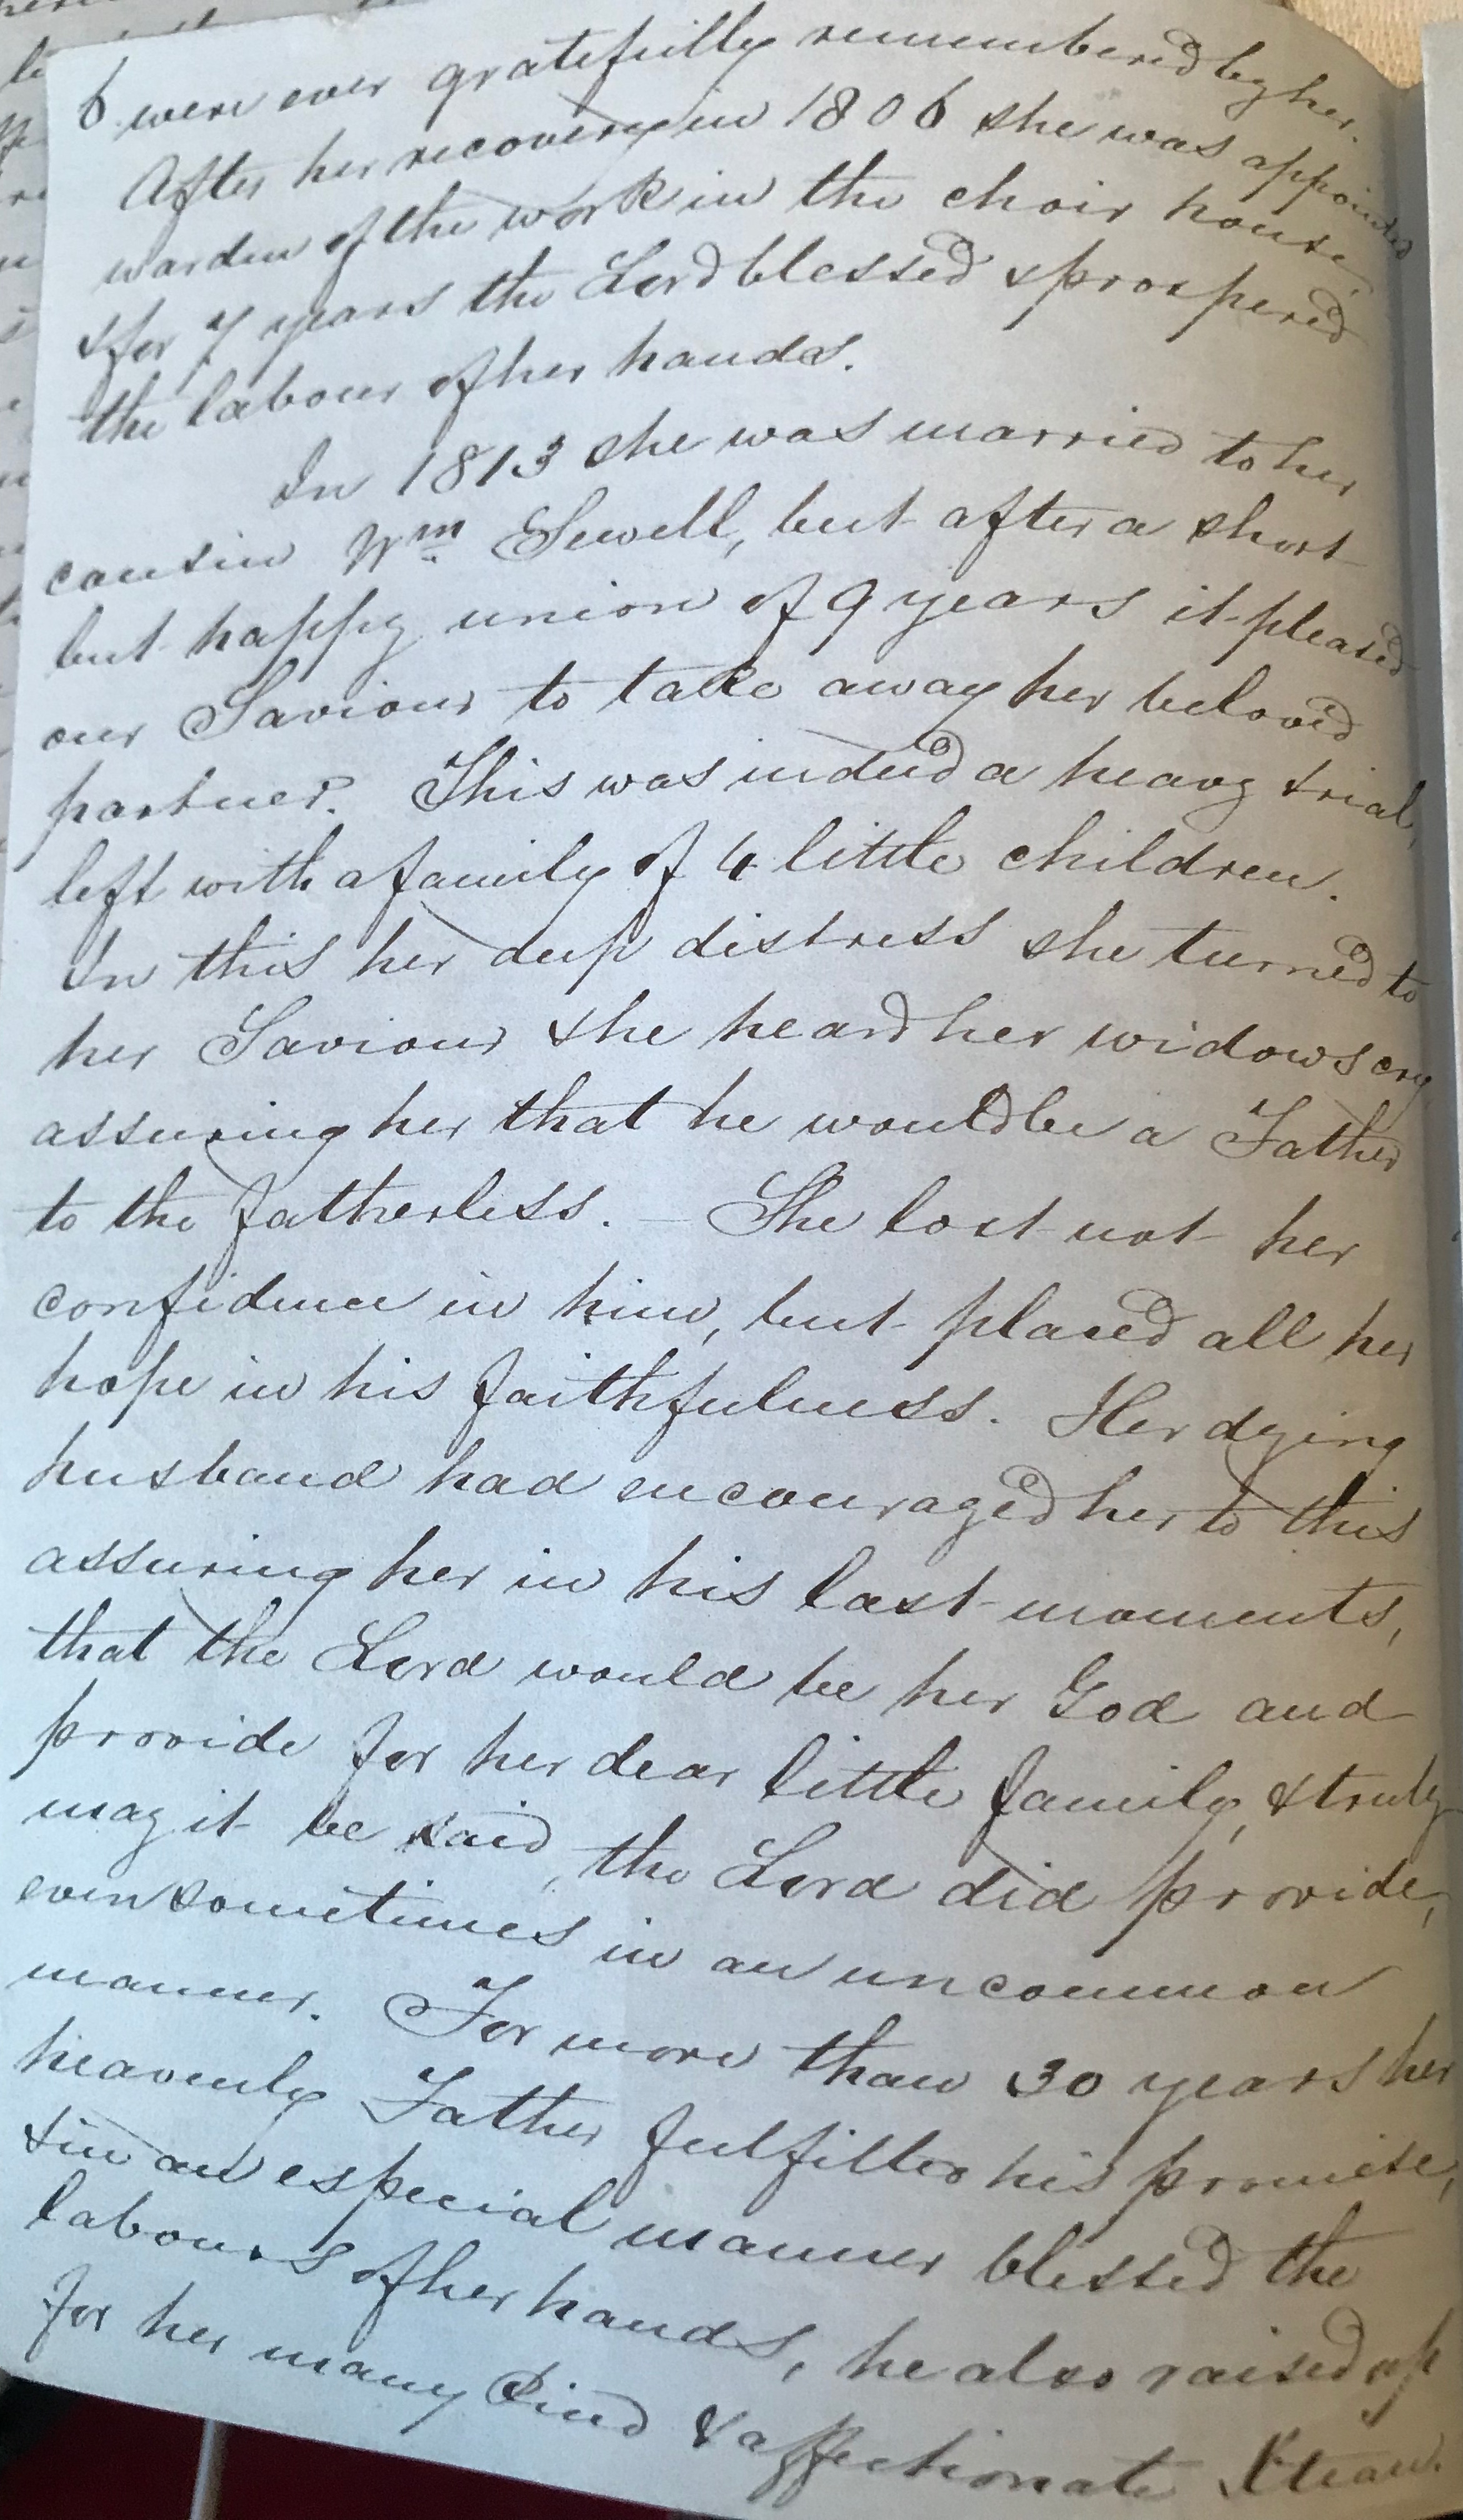 & were ever gratefully remembered by her.
After her recovery in 1806 she was appointed
warden of the work in the choir house,
& for 7 years the Lord blessed & prospered
the labour of her hands.
In 1813 she was married to her
cousin Wm Sewell, but after a short
but happy union of 9 years it pleased
our Saviour to take away her beloved
partner. This was indeed a heavy trial,
left with a family of 4 little children.
In this her deep distress she turned to
her Saviour & he heard her widows cry
assuring her that he would be a Father
to the fatherless. – She lost not her
confidence in him, but placed all her
hope in his faithfulness. Her dying
husband had encouraged her to this
assuring her in his last moments,
that the Lord would be her God and
provide for her dear little family, & truly
may it be said, the Lord did provide,
even sometimes in an uncommon
manner. For more than 30 years her
heavenly Father fulfilled his promise,
& in an especial manner blessed the
labours of her hands, he also raised up
for her many kind & affectionate Xtian